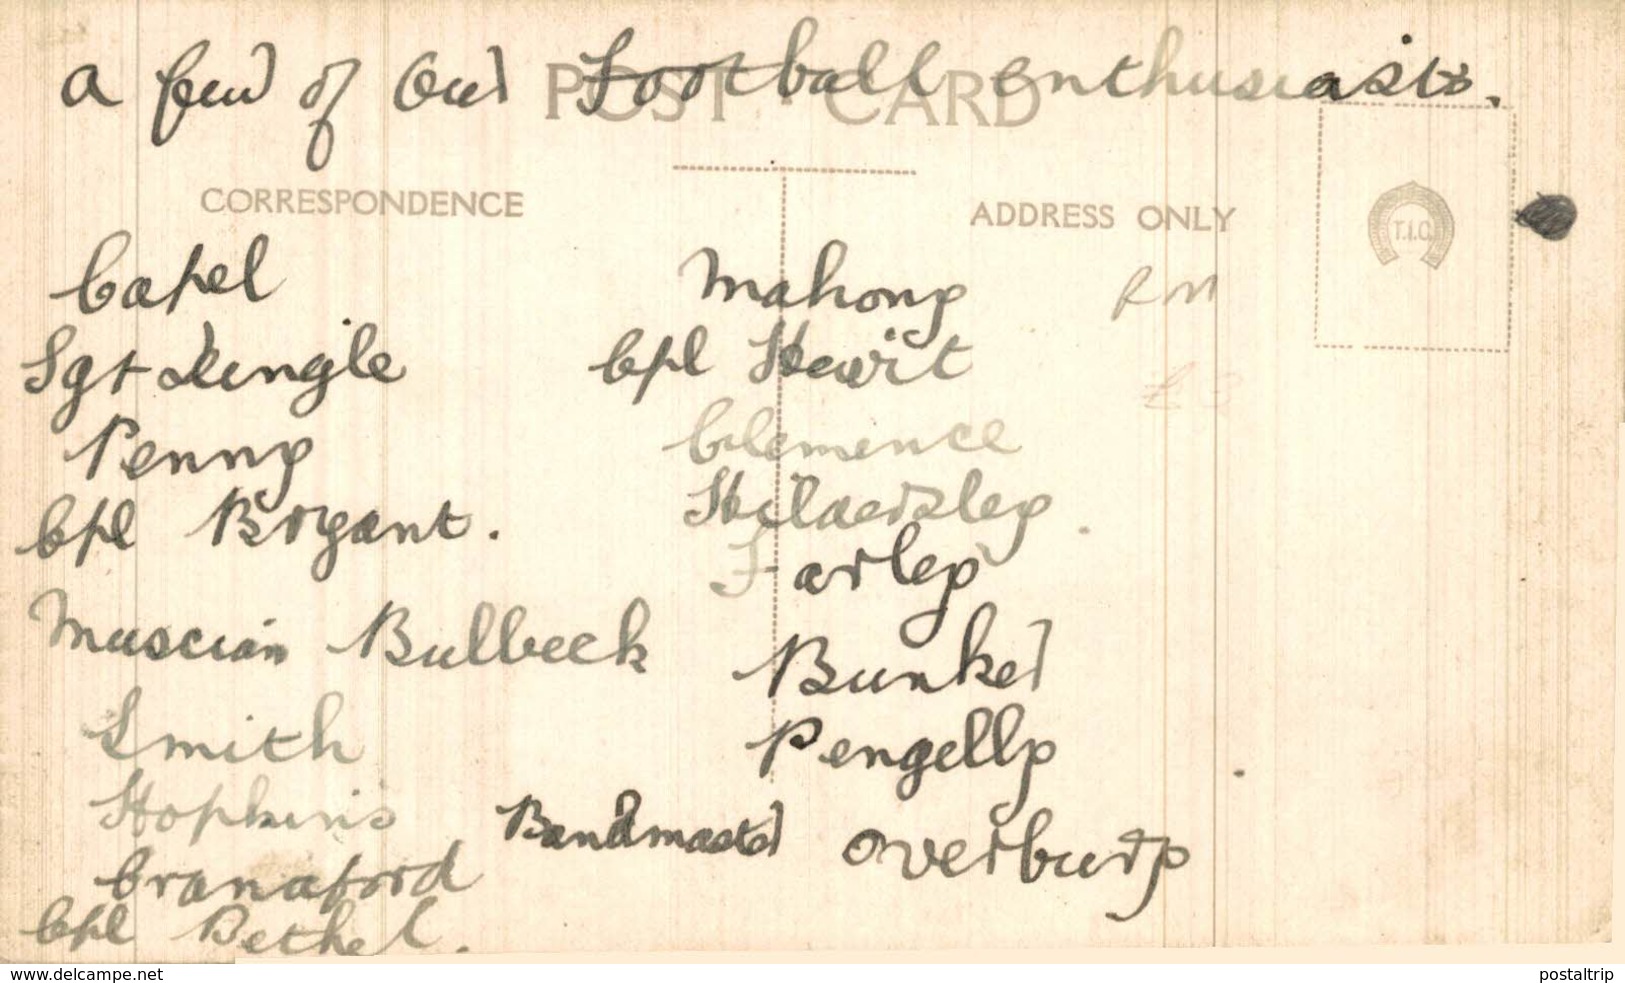 a few of our Football enthusiasts.
POST CARD
CORRESPONDENCE
ADDRESS ONLY
T.I.C.
Capel
Sgt Dingle
Penny
Cpl Bryant.
Muscian Bulbeck
Smith
Hopkins
Cranaford
Cpl Bethel.
Mahony
Cpl Hewit
Clemence
Hildersley.
Farley
Bunker
Pengelly
Bandmaster Overbury
RM
£3
www.delcampe.net
postaltrip